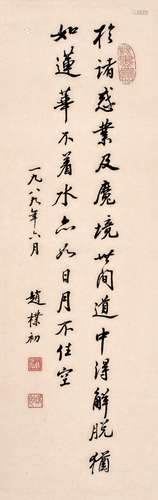 於诸惑業及魔境世间道中得解脱猶
如蓮華不着水亦如日月不住空
一九八九年六月
趙樸初